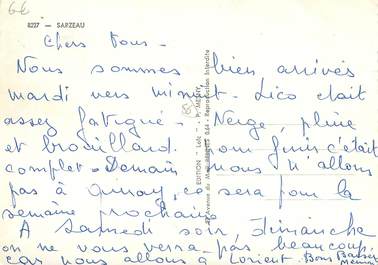 6€
8227 — SARZEAU
Chers Tous -
Nous sommes bien arrivés
mardi vers minuit - Lico était
assez fatigué - Neige, pluie
et brouillard. pour finir c'était
complet - Demain nous n'allons
pas à Auray, ce sera pour la
semaine prochaine
A Samedi soir, Dimanche
on ne vous verra pas beaucoup,
car nous allons à Lorient. Bons Baisers
Mémé